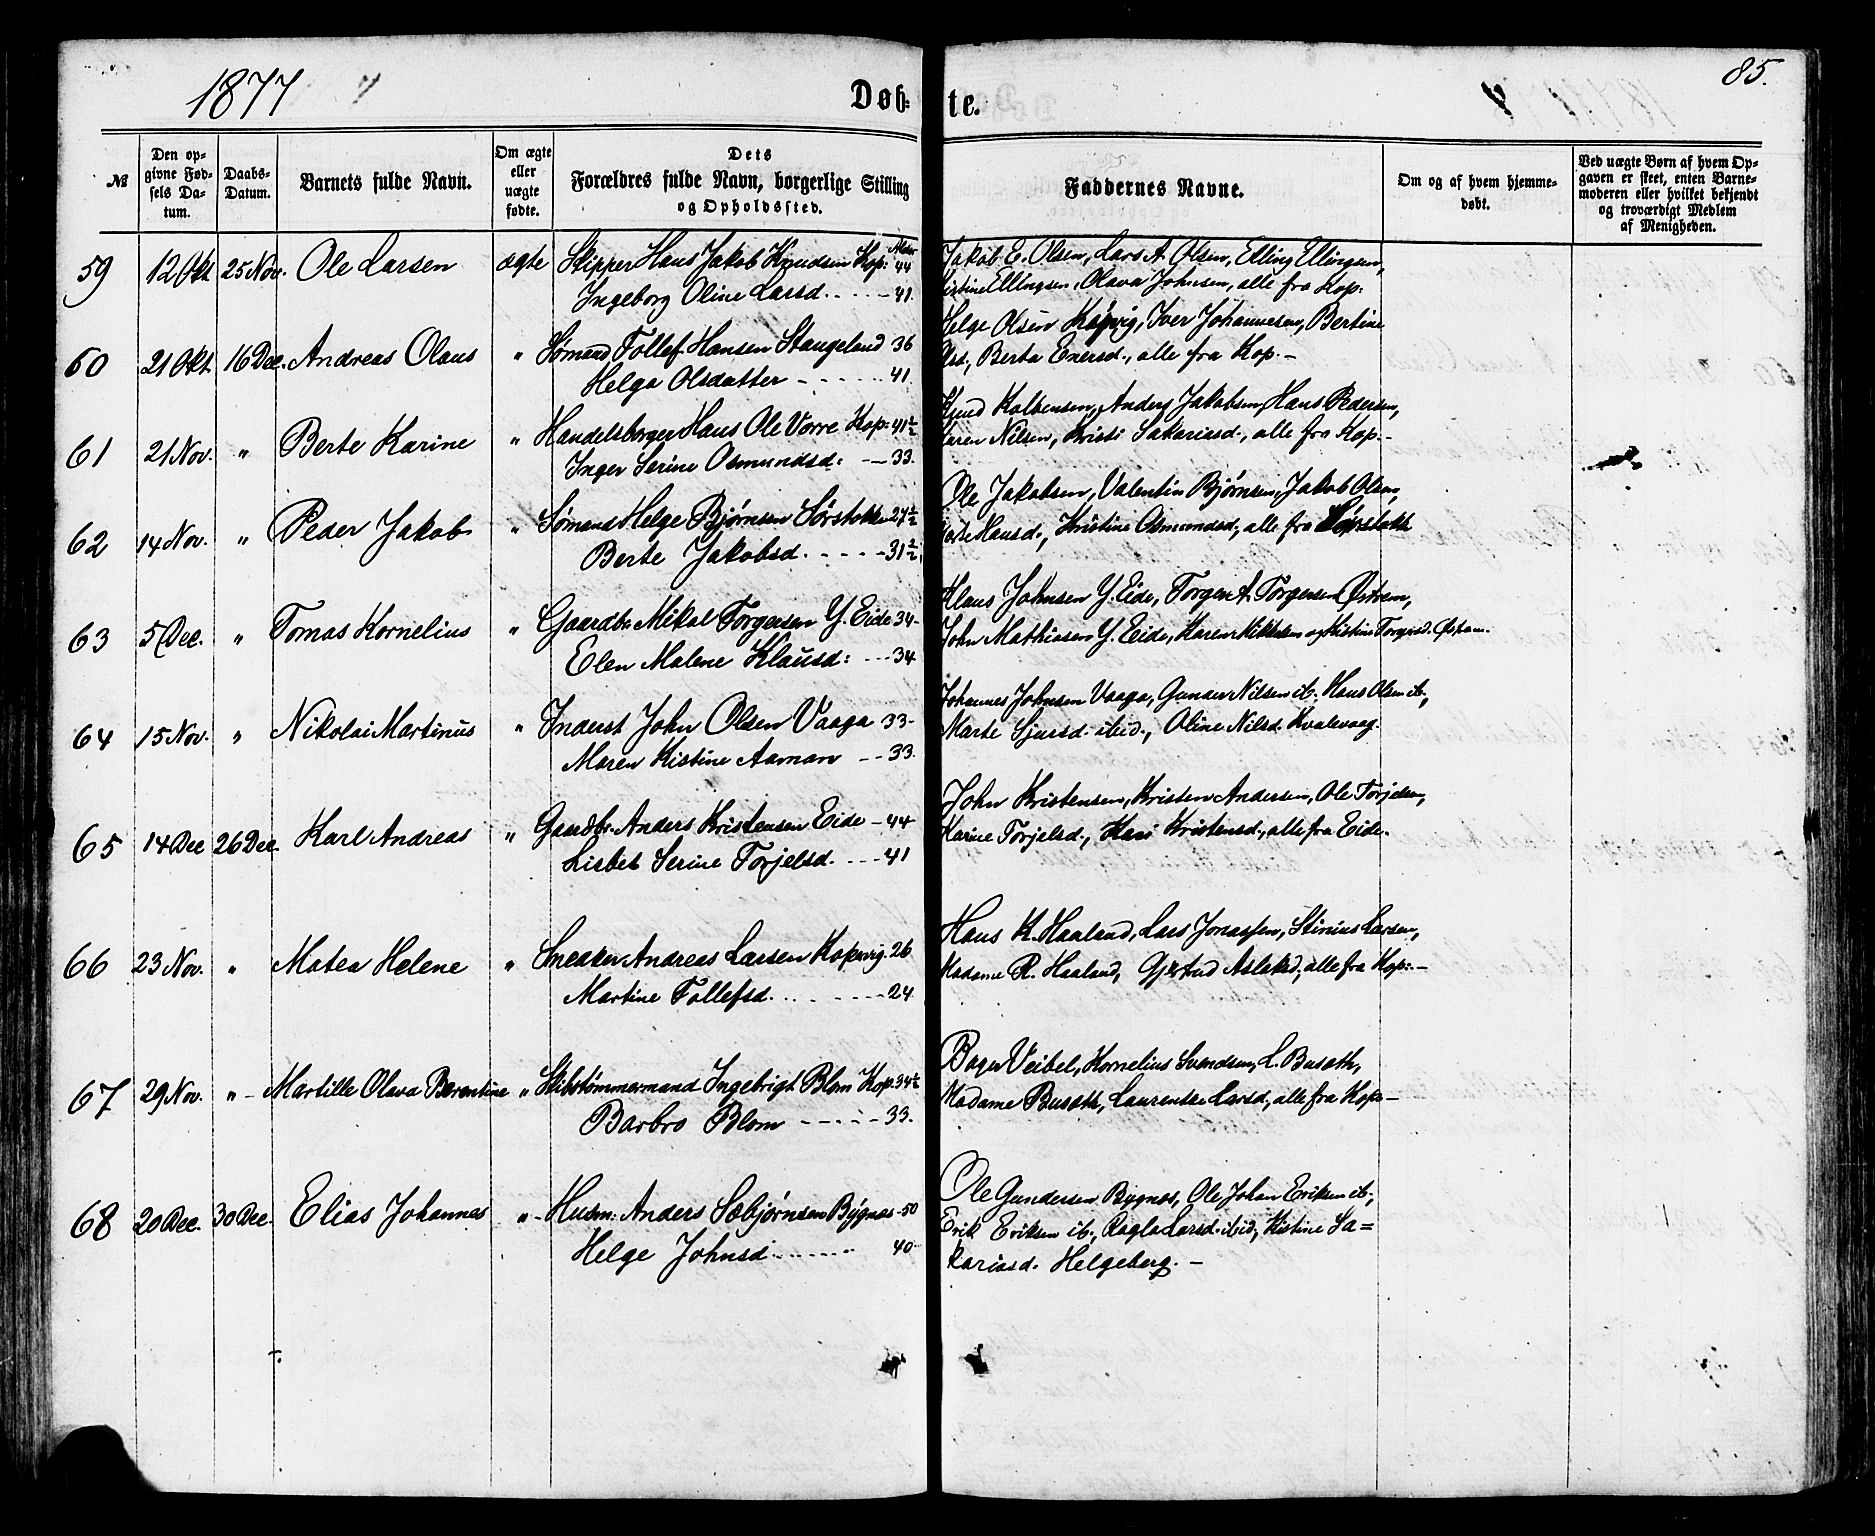 1877
Døbte.
85.
№
Den opgivne Fødsels Datum.
Daabs-Datum.
Barnets fulde Navn.
Om ægte eller uægte fødte.
Dets Forældres fulde Navn, borgerlige Stilling og Opholdssted.
Faddernes Navne.
Om og af hvem hjemmedøbt.
Ved uægte Børn af hvem Opgaven er skeet, enten Barnemoderen eller hvilket bekjendt og troværdigt Medlem af Menigheden.
59 12 Okt 25 Nov. Ole Larsen ægte Skipper Hans Jakob Knudsen Kop: Alder 44
Ingeborg Oline Larsd. 41.
Jakob E. Olsen, Lars A. Olsen, Elling Ellingsen,
Ellingsen, Olava Johnsen, alle fra Kop:
60 21 Okt 16 Dec. Andreas Olaus " Sømand Tollef Hansen Stangeland 36
Helga Olsdatter 41.
Helge Olsen Kopvig, Iver Johannesen, Bertine
Olsd., Berta Enersd., alle fra Kop.-
61 21 Nov. " Berte Karine " Handelsborger Hans Ole Vorre Kop: 41½
Inger Serine Osmundsd: 33.
Knud Kolbensen, Anders Jakobsen, Hans Pedersen,
Karen Nilsen, Kristi Sakariasd., alle fra Kop.-
62 14 Nov. " Peder Jakob " Sømand Helge Bjørnsen Sørstokke 27½
Berte Jakobsd. 31½
Ole Jakobsen, Valentin Bjørnsen, Jakob Olsen,
Hansd., Kristine Osmundsd., alle fra Sørstokk
63 5 Dec. " Tomas Kornelius " Gaardbr. Mikal Torgersen Y. Eide 34-
Elen Malene Klausd: 34
Klaus Johnsen Y. Eide, Torger A. Torgersen Østrem,
John Mathiasen Y. Eide, Karen Mikkelsen og Kistine Torgersd. Østrem.
64 15 Nov. " Nikolai Martinus " Inderst John Olsen Vaaga 33-
Maren Kistine Aaman 33.
Johannes Johnsen Vaaga, Gunder Nilsen ib. Hans Olsen ib.,
Marte Sjursd. ibid., Oline Nilsd. Kvalevaag.
65 14 Dec 26 Dec. Karl Andreas " Gaardbr. Anders Kristensen Eide 44
Lisbet Serine Torjelsd. 41
John Kristensen, Kristen Andersen, Ole Torjelsen,
Karine Torjelsd., Kari Kristensd., alle fra Eide.
66 23 Nov. " Matea Helene " Sneaker Andreas Larsen Kopervig. 26
Martine Tollefsd. 24
Hans K. Haaland, Lars Jonassen, Stinius Larsen,
Madame R. Haaland, Gjertrud Aslaksd., alle fra Kop:-
67 29 Nov. " Martille Olava Berentine " Skibstømmermand Ingebrigt Blom Kop. 34½
Barbro Blom 33.
Bager Veibel, Kornelius Svendsen, L. Busøth,
Madame Busøth, Laurentse Larsd., alle fra Kop:-
68 20 Dec. 30 Dec. Elias Johannes " Husm: Anders Sæbjørnsen Bygnæs 50
Helge Johnsd. 40
Ole Gundersen Bygnæs, Ole Johan Eriksen ib.,
Erik Eriksen ib., Ragla Larsd. ibid., Kistine Sa=
kariasd. Helgeberg.-